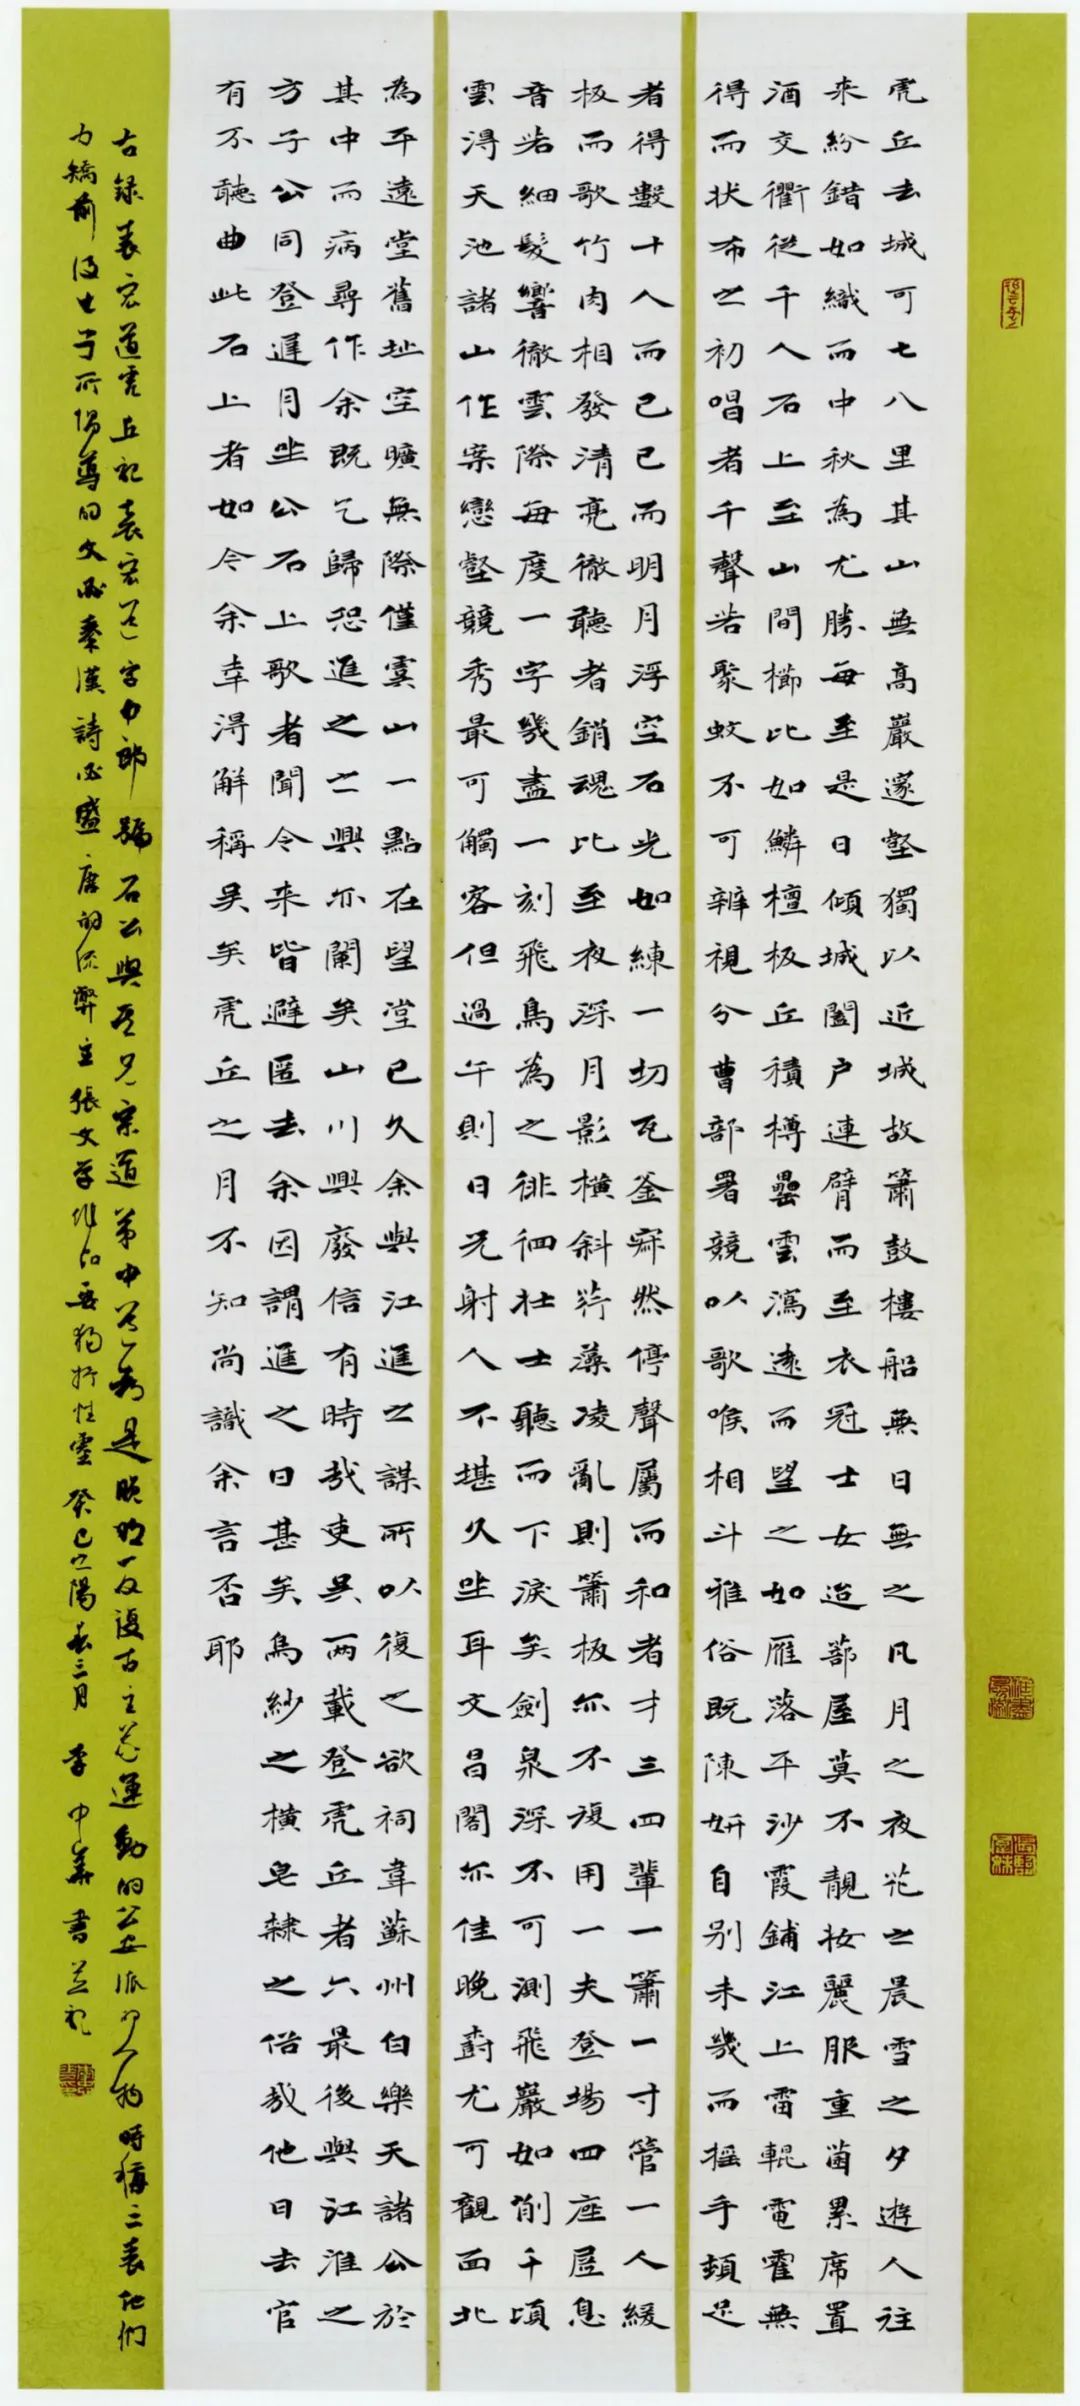 虎丘去城可七八里其山無高巖邃壑獨以近城故簫鼓樓船無日無之凡月之夜花之晨雪之夕遊人往
来紛錯如織而中秋為尤勝每至是日傾城闔户連臂而至衣冠士女迨蔀屋莫不靚妝麗服重茵累席置
酒交衢從千人石上至山間櫛比如鱗檀板丘積樽罍雲瀉遠而望之如雁落平沙霞鋪江上雷輥電霍無
得而状布之初唱者千聲若聚蚊不可辨視分曹部署競以歌喉相斗雅俗既陳妍自别未幾而摇手頓足
者得數十人而已已而明月浮空石光如練一切瓦釜寂然停聲屬而和者才三四輩一簫一寸管一人緩
板而歌竹肉相發清亮徹聽者銷魂比至夜深月影横斜荇藻凌亂則簫板亦不復用一夫登場四座屏息
音若細髮響徹雲際每度一字幾盡一刻飛鳥為之徘徊壯士聽而下淚矣劍泉深不可測飛巖如削千頃
雲得天池諸山作案巒壑競秀最可觴客但過午則日光射人不堪久坐耳文昌閣亦佳晚樹尤可觀面北
為平遠堂舊址空曠無際僅虞山一點在望堂已久余與江進之謀所以復之欲祠韋蘇州白樂天諸公於
其中而病尋作余既乞歸恐進之之興亦闌矣山川興廢信有時哉吏吳兩載登虎丘者六最後與江淮之
方子公同登遲月坐公石上歌者聞令来皆避匿去余因謂進之曰甚矣烏紗之横皂隸之俗哉他日去官
有不聽曲此石上者如今余幸得解稱吳矣虎丘之月不知尚識余言否耶
古録袁宏道虎丘記袁宏道字中郎號石公與其兄宗道弟中道為是晚明一反復古主義運動的公安派的人物時稱三袁他們
力矯前後七子所倡導的文必秦漢詩必盛唐的流弊主張文學作品要獨抒性靈癸巳之陽春三月李中華書並記